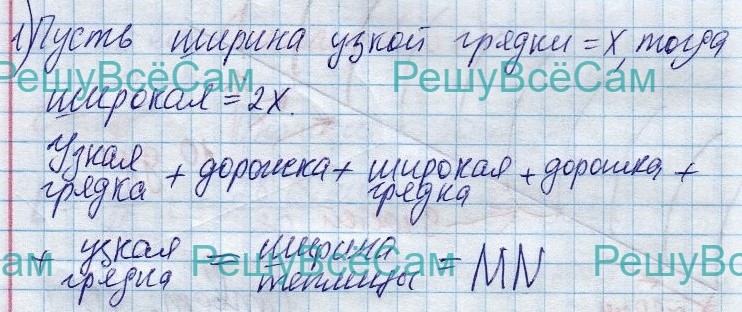 1) Пусть ширина узкой грядки = x, тогда
РешуВсёСам РешуВсёСам
широкая = 2x.
Узкая грядка + дорожка + широкая грядка + дорожка +
+ узкая грядка = ширина теплицы = MN
ам РешуВсёСам РешуВсё